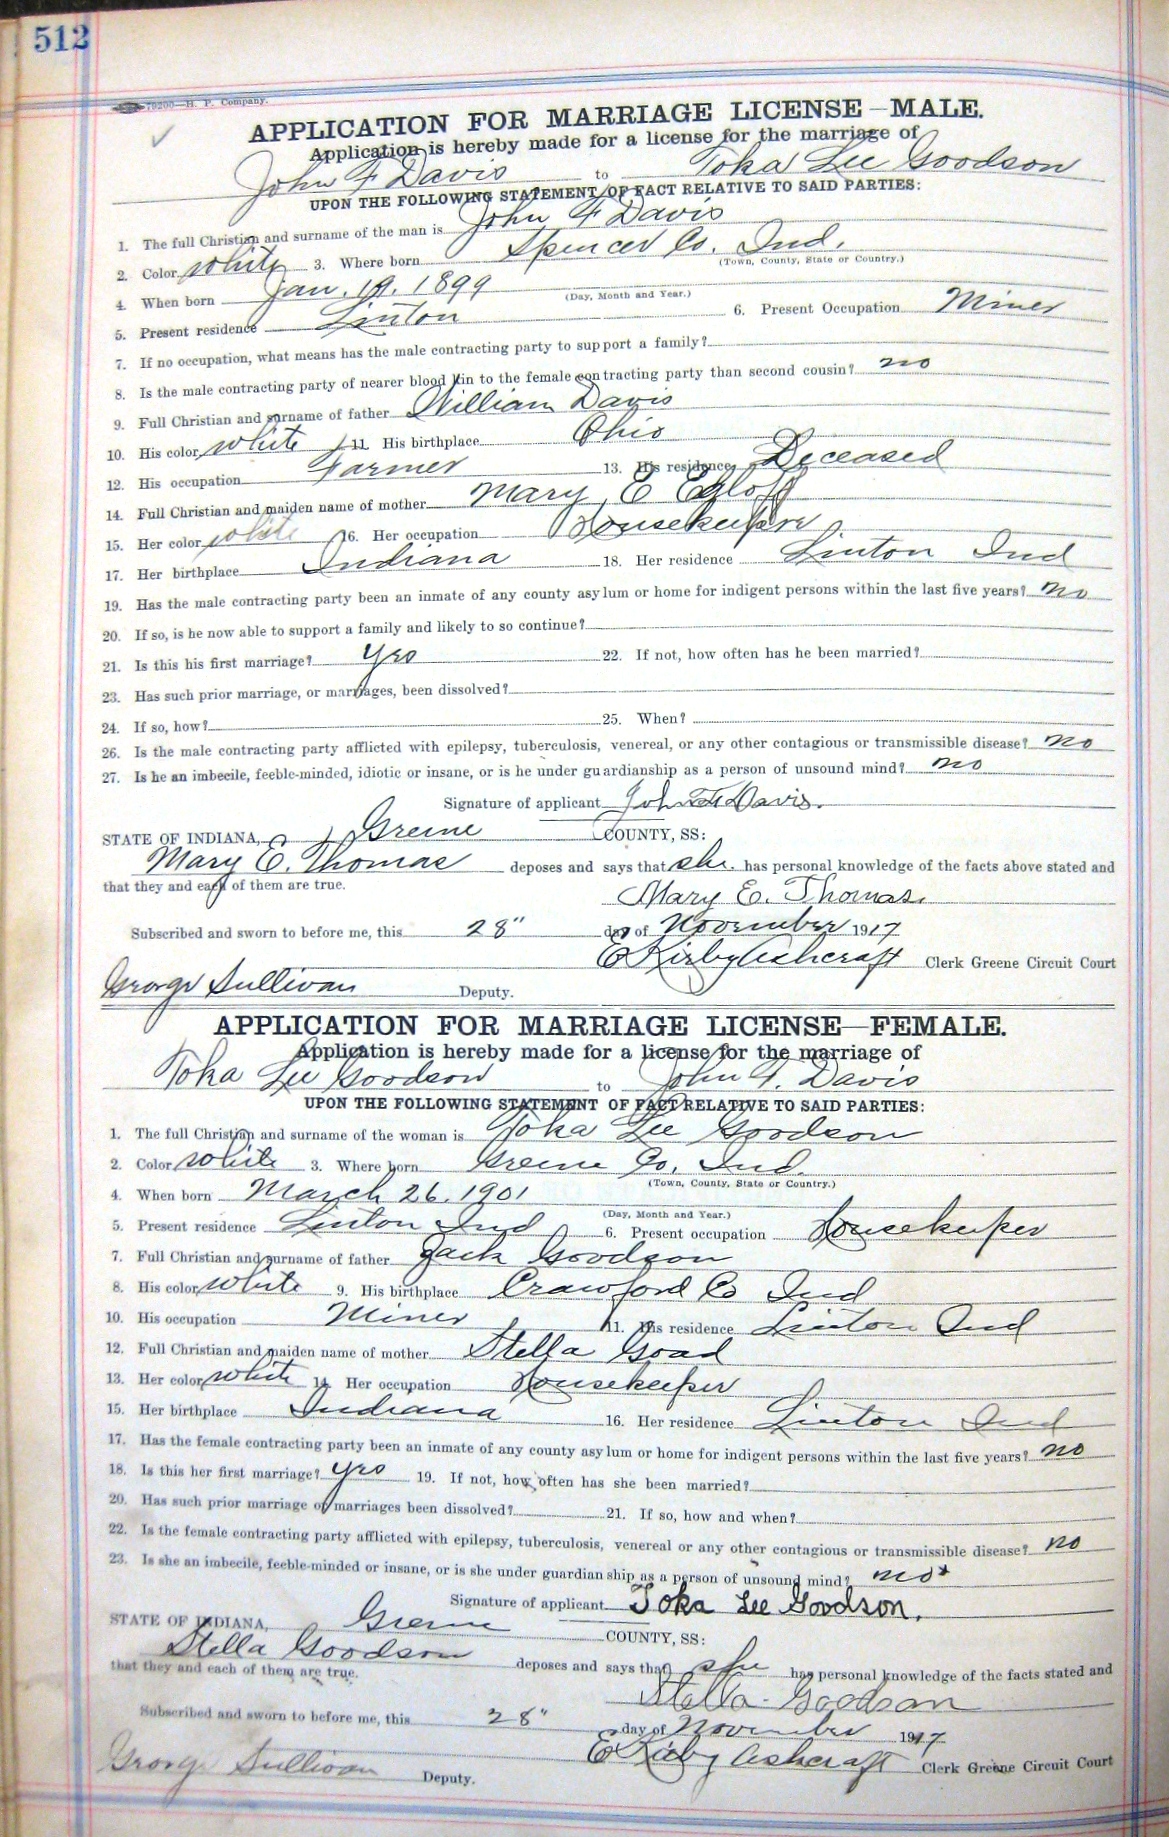 512
79200—H. P. Company.
APPLICATION FOR MARRIAGE LICENSE—MALE.
Application is hereby made for a license for the marriage of
John F Davis to Toka Lee Goodson
UPON THE FOLLOWING STATEMENT OF FACT RELATIVE TO SAID PARTIES:
1. The full Christian and surname of the man is John F Davis
2. Color white 3. Where born Spencer Co. Ind.
(Town, County, State or Country.)
4. When born Jan. 19. 1899
(Day, Month and Year.)
5. Present residence Linton 6. Present Occupation Miner
7. If no occupation, what means has the male contracting party to support a family?
8. Is the male contracting party of nearer blood kin to the female contracting party than second cousin? no
9. Full Christian and surname of father William Davis
10. His color white 11. His birthplace Ohio
12. His occupation Farmer 13. His residence Deceased
14. Full Christian and maiden name of mother Mary E Egloff
15. Her color white 16. Her occupation Housekeeper
17. Her birthplace Indiana 18. Her residence Linton Ind
19. Has the male contracting party been an inmate of any county asylum or home for indigent persons within the last five years? no
20. If so, is he now able to support a family and likely to so continue?
21. Is this his first marriage? yes 22. If not, how often has he been married?
23. Has such prior marriage, or marriages, been dissolved?
24. If so, how? 25. When?
26. Is the male contracting party afflicted with epilepsy, tuberculosis, venereal, or any other contagious or transmissible disease? no
27. Is he an imbecile, feeble-minded, idiotic or insane, or is he under guardianship as a person of unsound mind? no
Signature of applicant John F Davis.
STATE OF INDIANA, Greene COUNTY, SS:
Mary E. Thomas deposes and says that she. has personal knowledge of the facts above stated and
that they and each of them are true.
Mary E. Thomas.
Subscribed and sworn to before me, this 28" day of November 1917
E Kirby Ashcraft Clerk Greene Circuit Court
George Sullivan Deputy.
APPLICATION FOR MARRIAGE LICENSE—FEMALE.
Application is hereby made for a license for the marriage of
Toka Lee Goodson to John F. Davis
UPON THE FOLLOWING STATEMENT OF FACT RELATIVE TO SAID PARTIES:
1. The full Christian and surname of the woman is Toka Lee Goodson
2. Color white 3. Where born Greene Co. Ind.
(Town, County, State or Country.)
4. When born March 26. 1901
(Day, Month and Year.)
5. Present residence Linton Ind 6. Present occupation Housekeeper
7. Full Christian and surname of father Jack Goodson
8. His color white 9. His birthplace Crawford Co Ind
10. His occupation Miner 11. His residence Linton Ind
12. Full Christian and maiden name of mother Stella Goad
13. Her color white 14 Her occupation Housekeeper
15. Her birthplace Indiana 16. Her residence Linton Ind
17. Has the female contracting party been an inmate of any county asylum or home for indigent persons within the last five years? no
18. Is this her first marriage? yes 19. If not, how often has she been married?
20. Has such prior marriage of marriages been dissolved? 21. If so, how and when?
22. Is the female contracting party afflicted with epilepsy, tuberculosis, venereal or any other contagious or transmissible disease? no
23. Is she an imbecile, feeble-minded or insane, or is she under guardianship as a person of unsound mind? no
Signature of applicant Toka Lee Goodson.
STATE OF INDIANA, Greene COUNTY, SS:
Stella Goodson deposes and says that she has personal knowledge of the facts stated and
that they and each of them are true.
Stella Goodson
Subscribed and sworn to before me, this 28" day of November 1917
E Kirby Ashcraft Clerk Greene Circuit Court
George Sullivan Deputy.